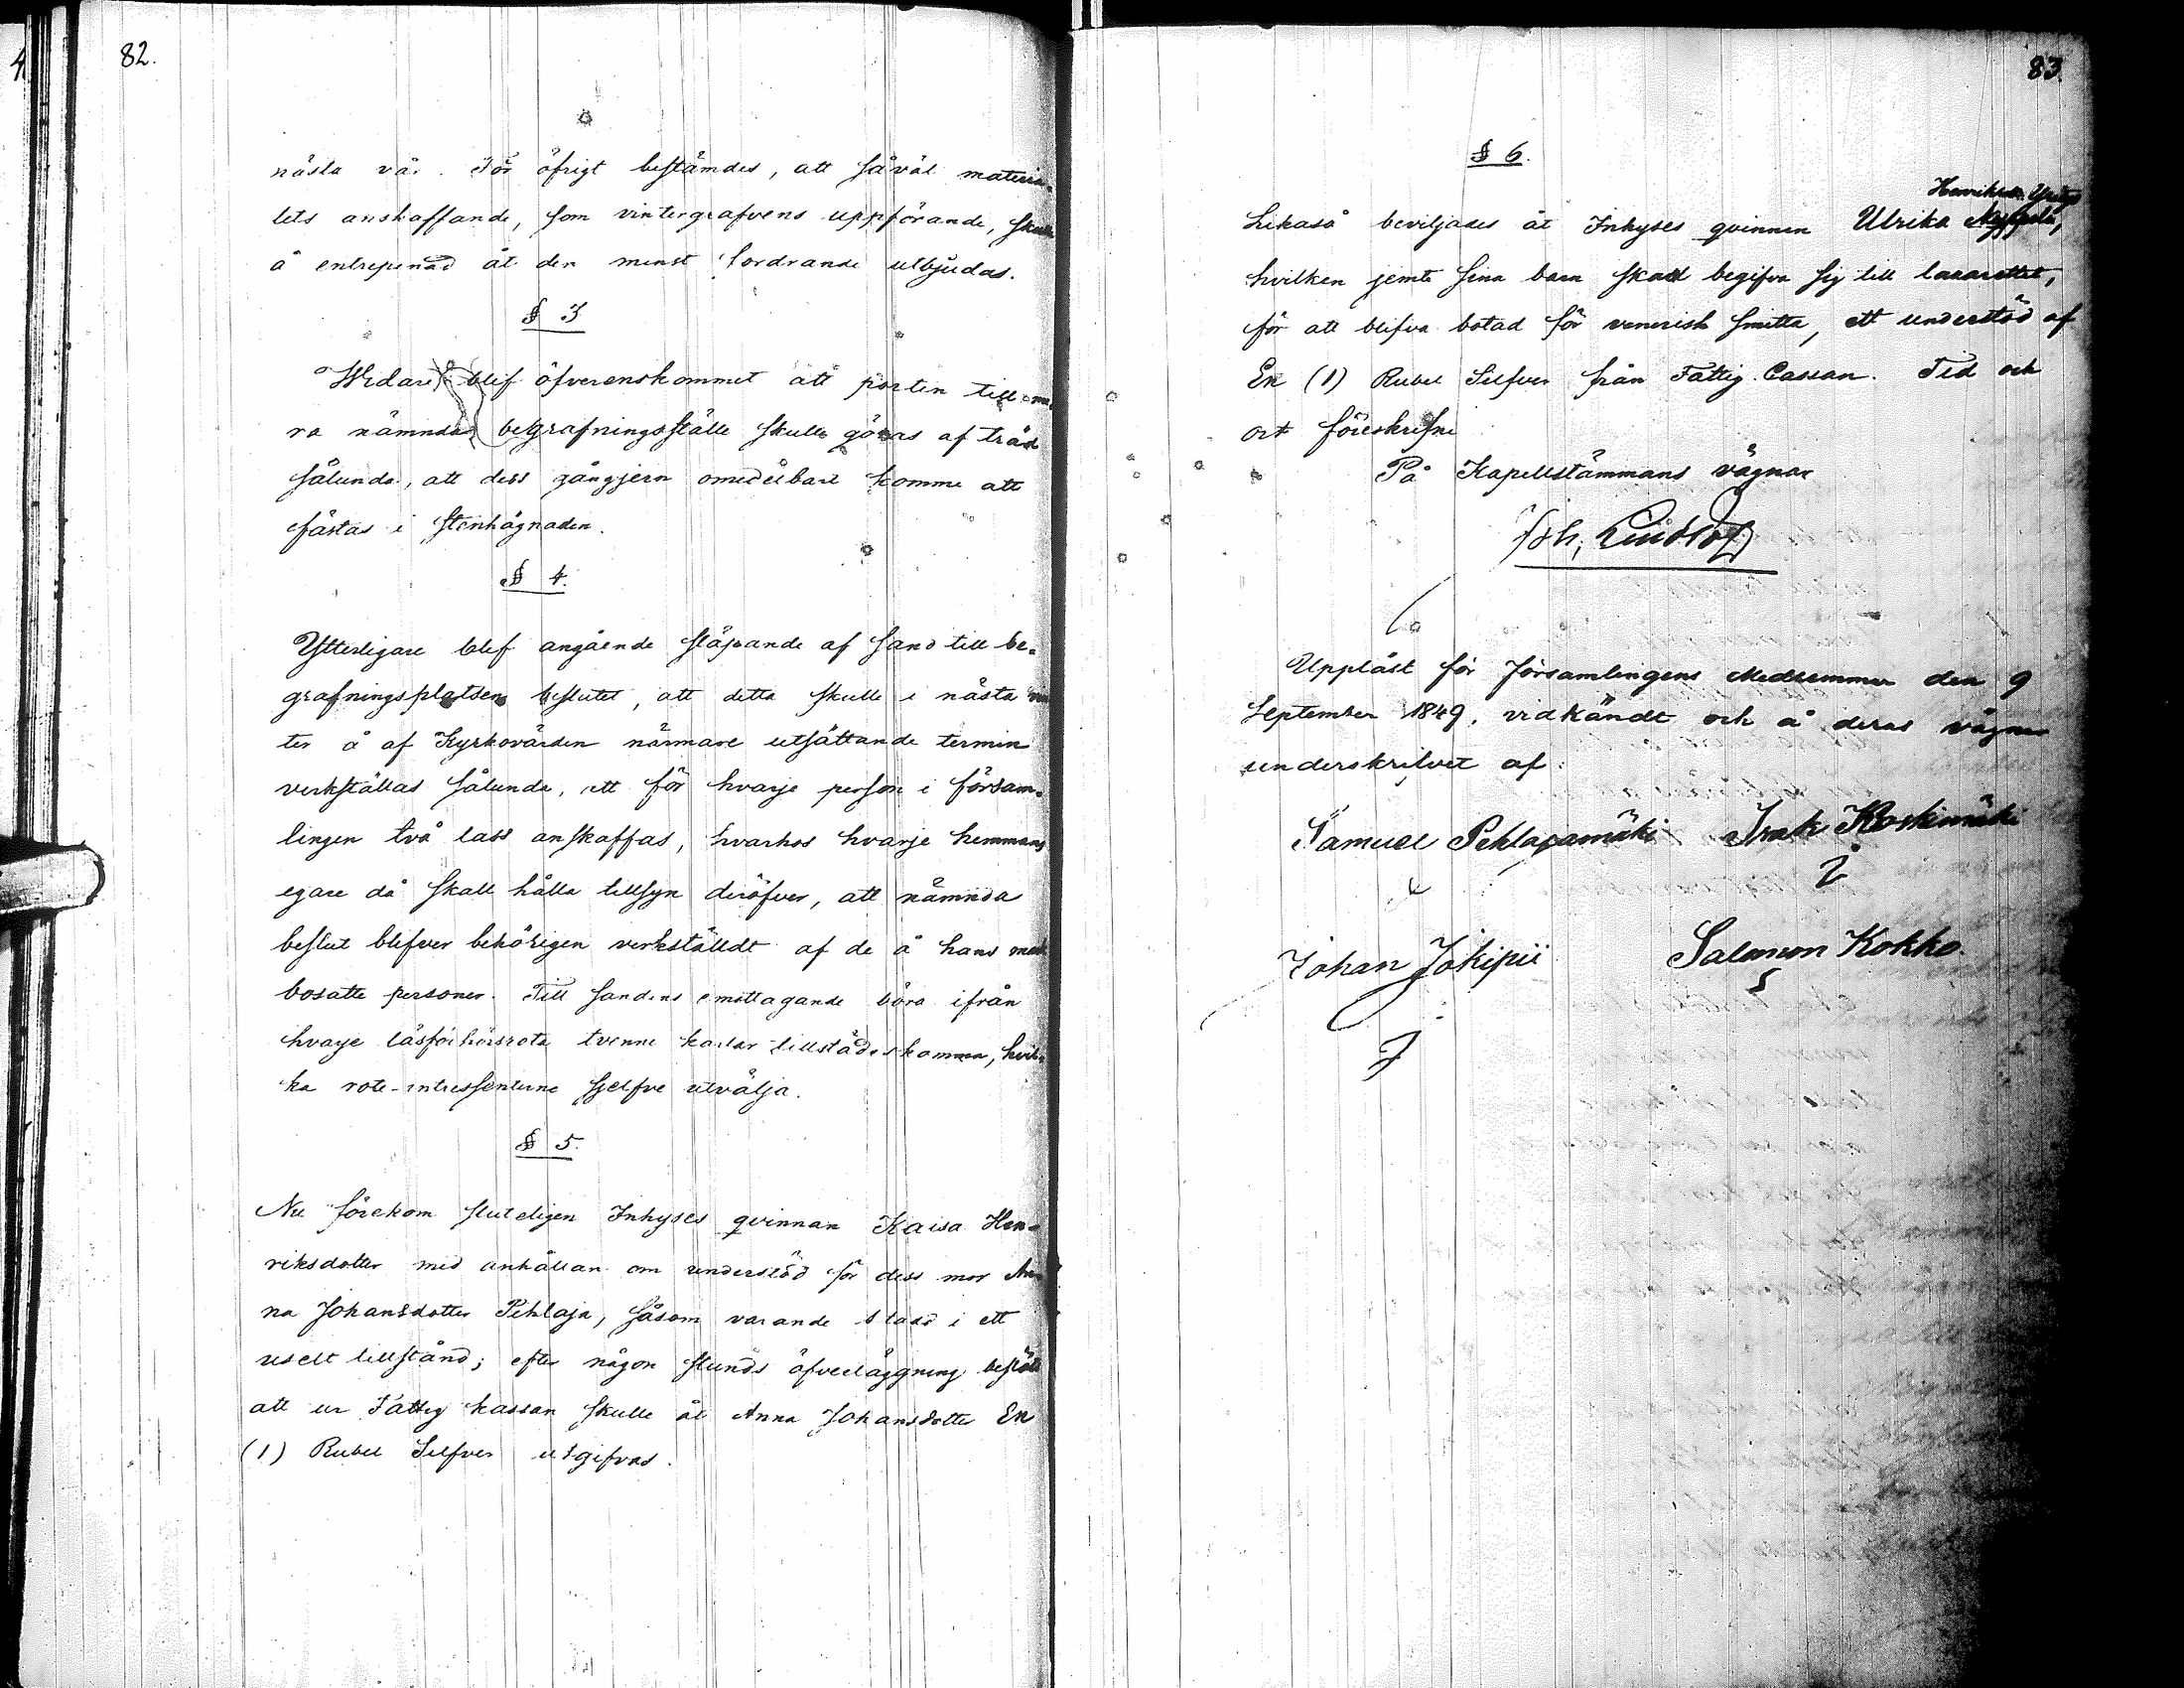 82.
nästa vår. För öfrigt bestämdes, att såväl materia-
lets anskaffande, som vintergrafvens uppförande, skulle
å entreprenad åt den minst fordrande utbjudas.
§ 3
Widare blef öfverenskommet att porten till
ra nämnda begrafningsställe skulle göras af träd
sålunda, att dess gångjern omedelbart komme att
fästas i stenhägnaden.
§ 4.
Ytterligare blef angående släpande af sand till be-
grafningsplatsen beslutet, att detta skulle i nästa
ter å af Kyrkovärden närmare utsättande termin
verkställas sålunda, att för hvarje person i försam-
lingen två lass anskaffas, hvarhos hvarje hemmans
egare då skall hålla tillsyn deröfver, att nämnda
beslut blifver behörigen verkställdt af de å hans mark
bosatte personer. Till sandens emottagande böra ifrån
hvarje läsförhörsrote tvenne karlar tillstädeskomma, hvil-
ka rote-intressenterne sjelfve utvälja.
§ 5.
Nu förekom sluteligen Inhyses qvinnan Kaisa Hen-
riksdotter med anhållan om understöd för dess mor An-
na Johansdotter Pehlaja, såsom varande stadd i ett
uselt tillstånd; efter någon stunds öfverläggning beslöts
att ur Fattig kassan skulle åt Anna Johansdotter En
(1) Rubel Silfver utgifvas.
83.
§ 6.
Likaså beviljades åt Inhyses qvinnan Ulrika
hvilken jemte sina barn skall begifva sig till lazarettet,
för att blifva botad för venerisk smitta, ett understöd af
En (1) Rubel Silfver från Fattig Cassan. Tid och
ort föreskrifne
På Kapellstämmans vägnar
Joh.
Uppläst för Församlingens Medlemmar den 9
September 1849, vidkändt och å deras vägnar
underskrifvet af:
Samuel Pehlajamäki Isak Koskimäki
Johan Jokipii Salomon Kokko.